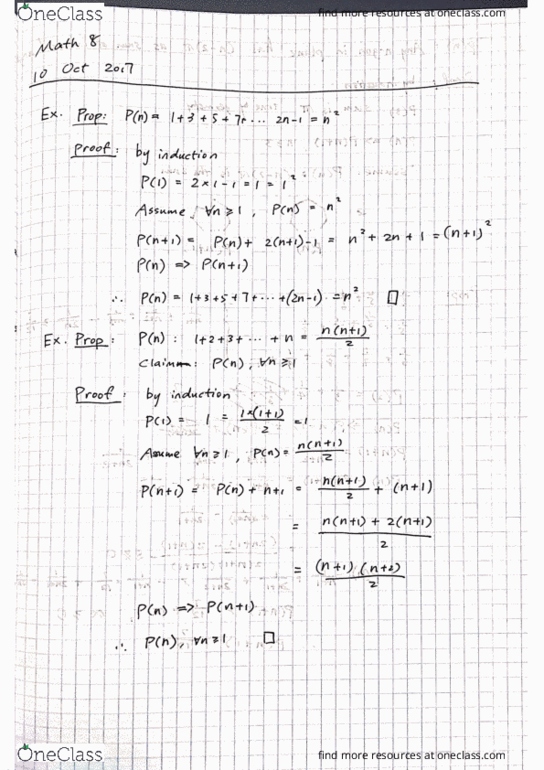 OneClass
find more resources at oneclass.com
Math 8
10 Oct 2017
Ex. Prop: P(n) = 1+3+5+7+... 2n-1 = n²
Proof: by induction
P(1) = 2×1-1 = 1 = 1²
Assume ∀n≥1, P(n) = n²
P(n+1) = P(n) + 2(n+1)-1 = n²+2n+1 = (n+1)²
P(n) => P(n+1)
∴ P(n) = 1+3+5+7+...+(2n-1) = n² □
Ex. Prop: P(n): 1+2+3+...+n = n(n+1)/2
Claim: P(n), ∀n≥1
Proof: by induction
P(1) = 1 = 1×(1+1)/2 = 1
Assume ∀n≥1, P(n) = n(n+1)/2
P(n+1) = P(n) + n+1 = n(n+1)/2 + (n+1)
= n(n+1) + 2(n+1)/2
= (n+1)(n+2)/2
P(n) => P(n+1)
∴ P(n), ∀n≥1 □
OneClass
find more resources at oneclass.com